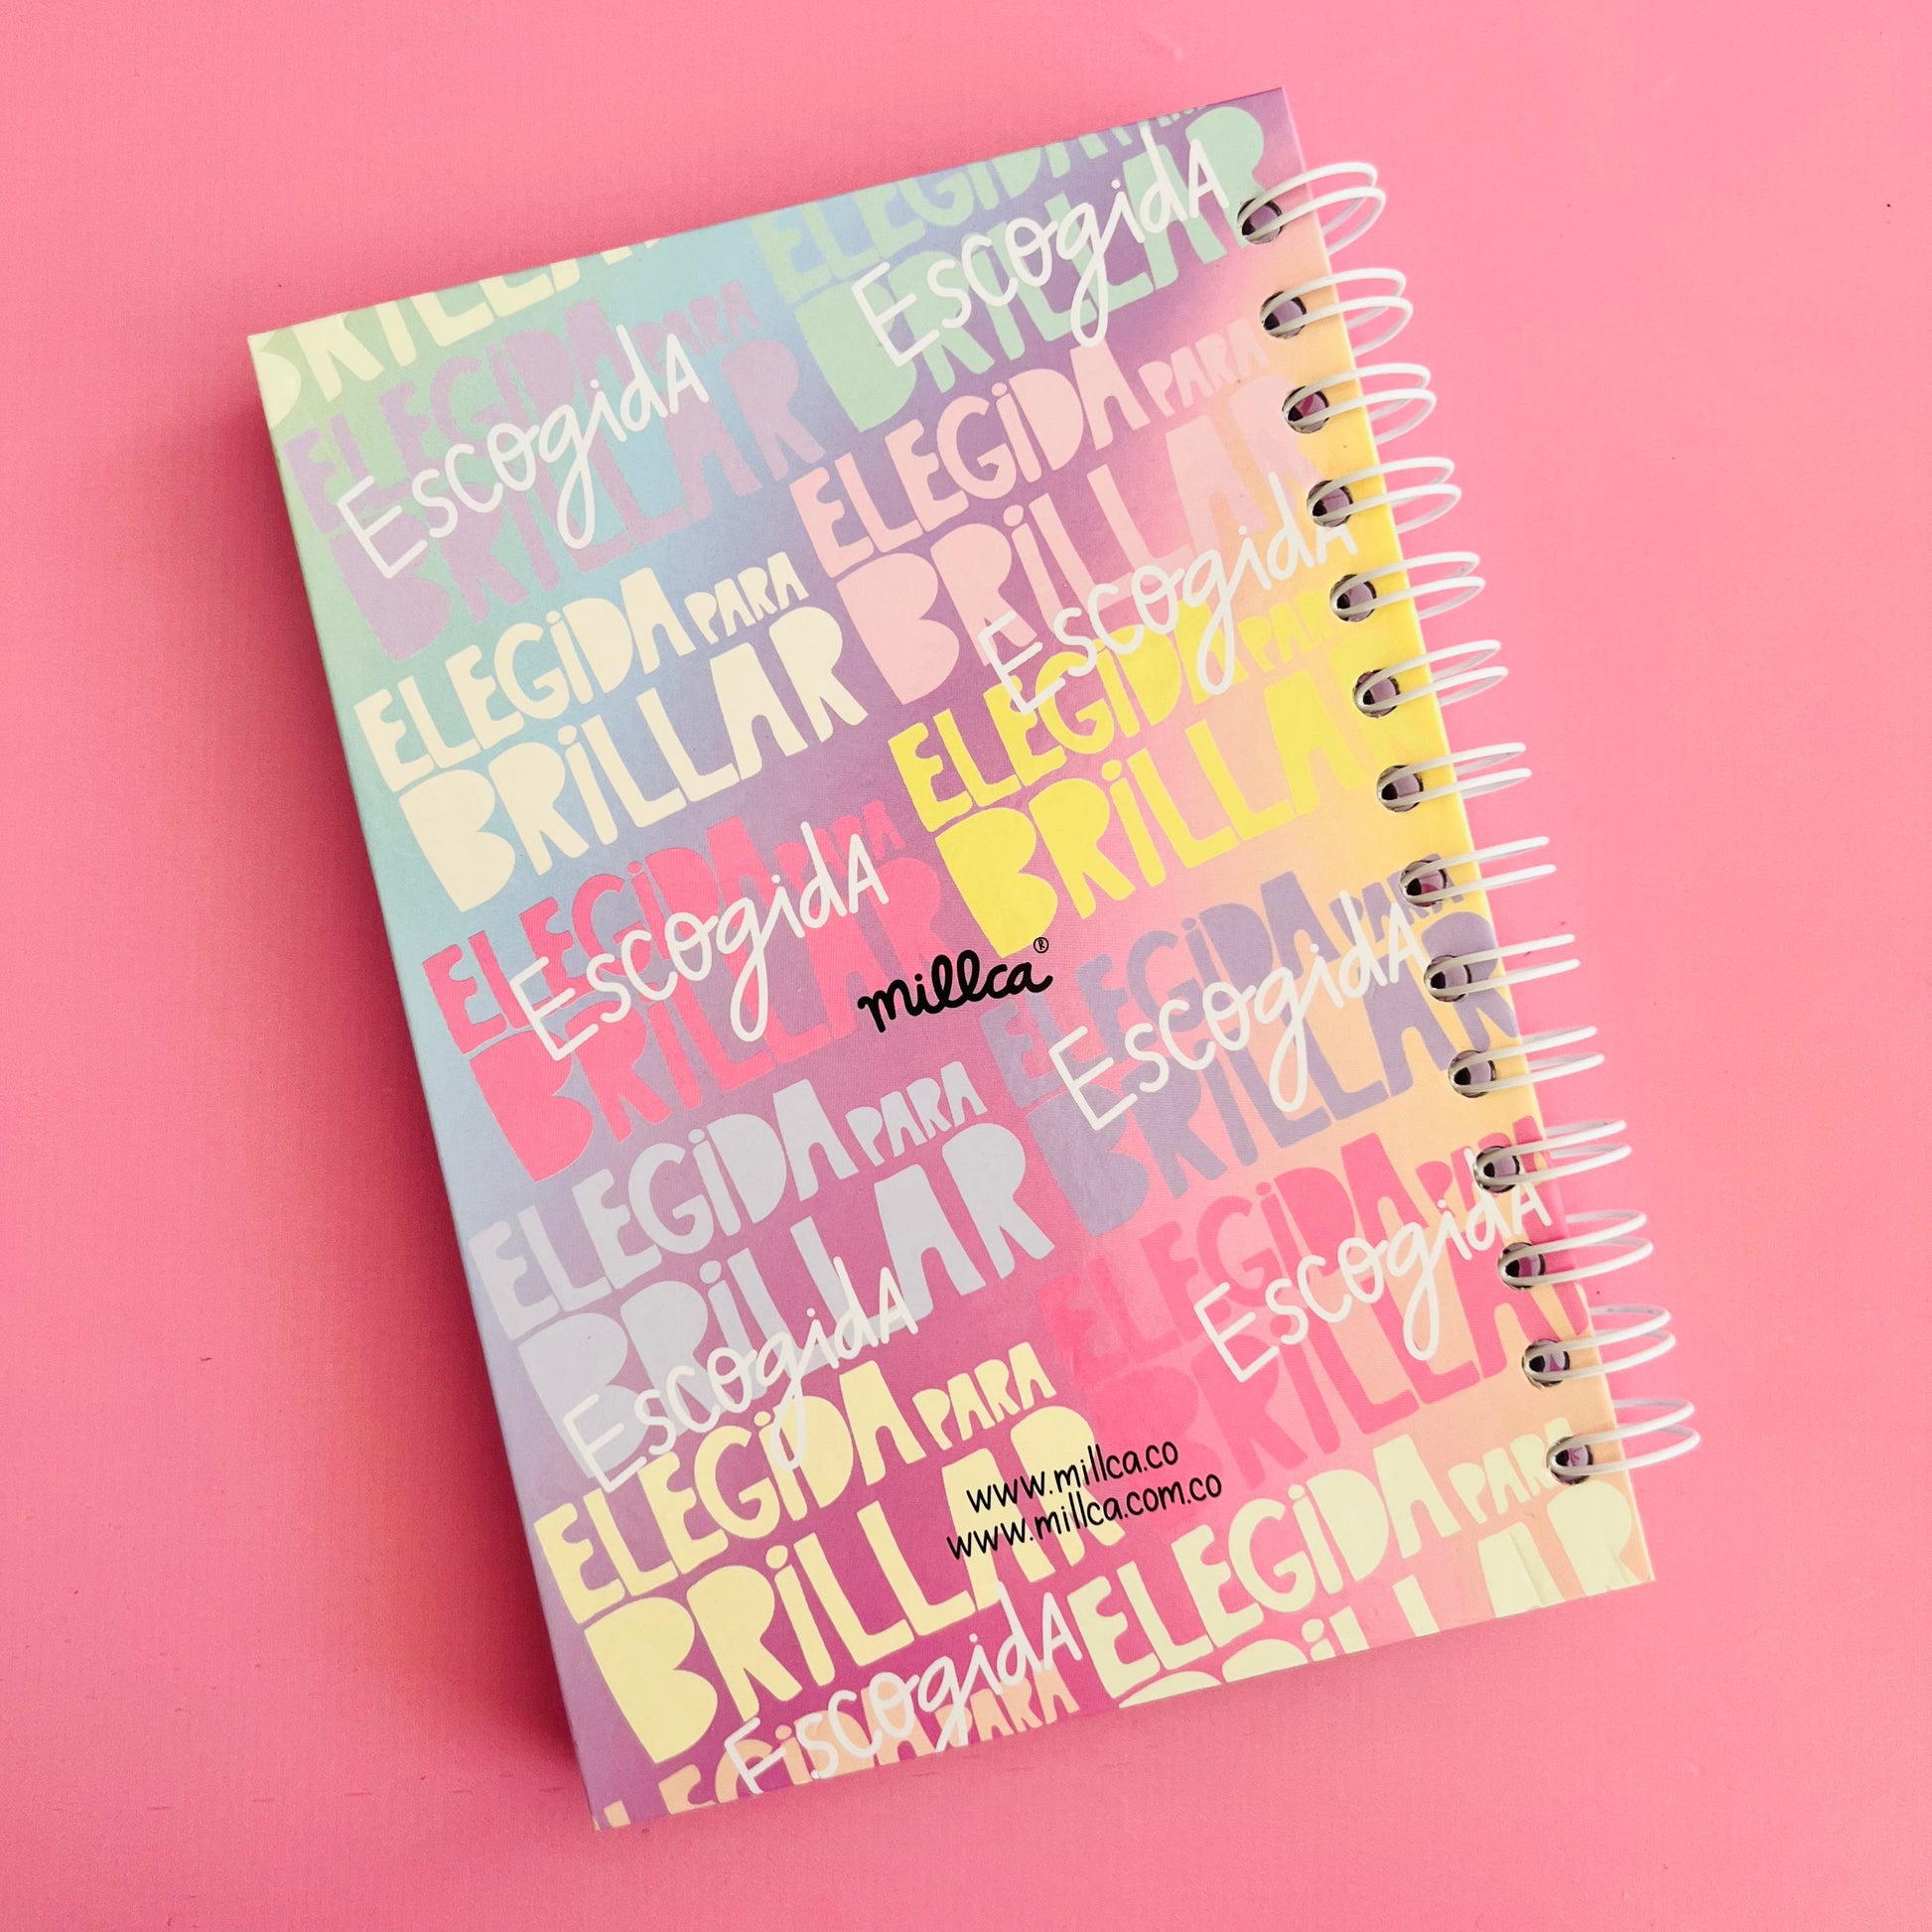 BRILLAR
ELEGiDA PARA
BRiLLAR
EscogidA
ELEGiDA PARA
BRiLLAR
EscogidA
ELEGiDA PARA
BRiLLAR
ELEGiDA PARA
BRiLLAR
EscogidA
ELEGiDA PARA
BRiLLAR
ELEGiDA PARA
BRiLLAR
EscogidA
millca®
ELEGiDA PARA
BRiLLAR
EscogidA
ELEGiDA PARA
BRiLLAR
EscogidA
ELEGiDA PARA
BRiLLAR
EscogidA
ELEGiDA PARA
BRiLLAR
www.millca.co
www.millca.com.co
ELEGiDA PARA
BRiLLAR
EscogidA
ELEGiDA PARA